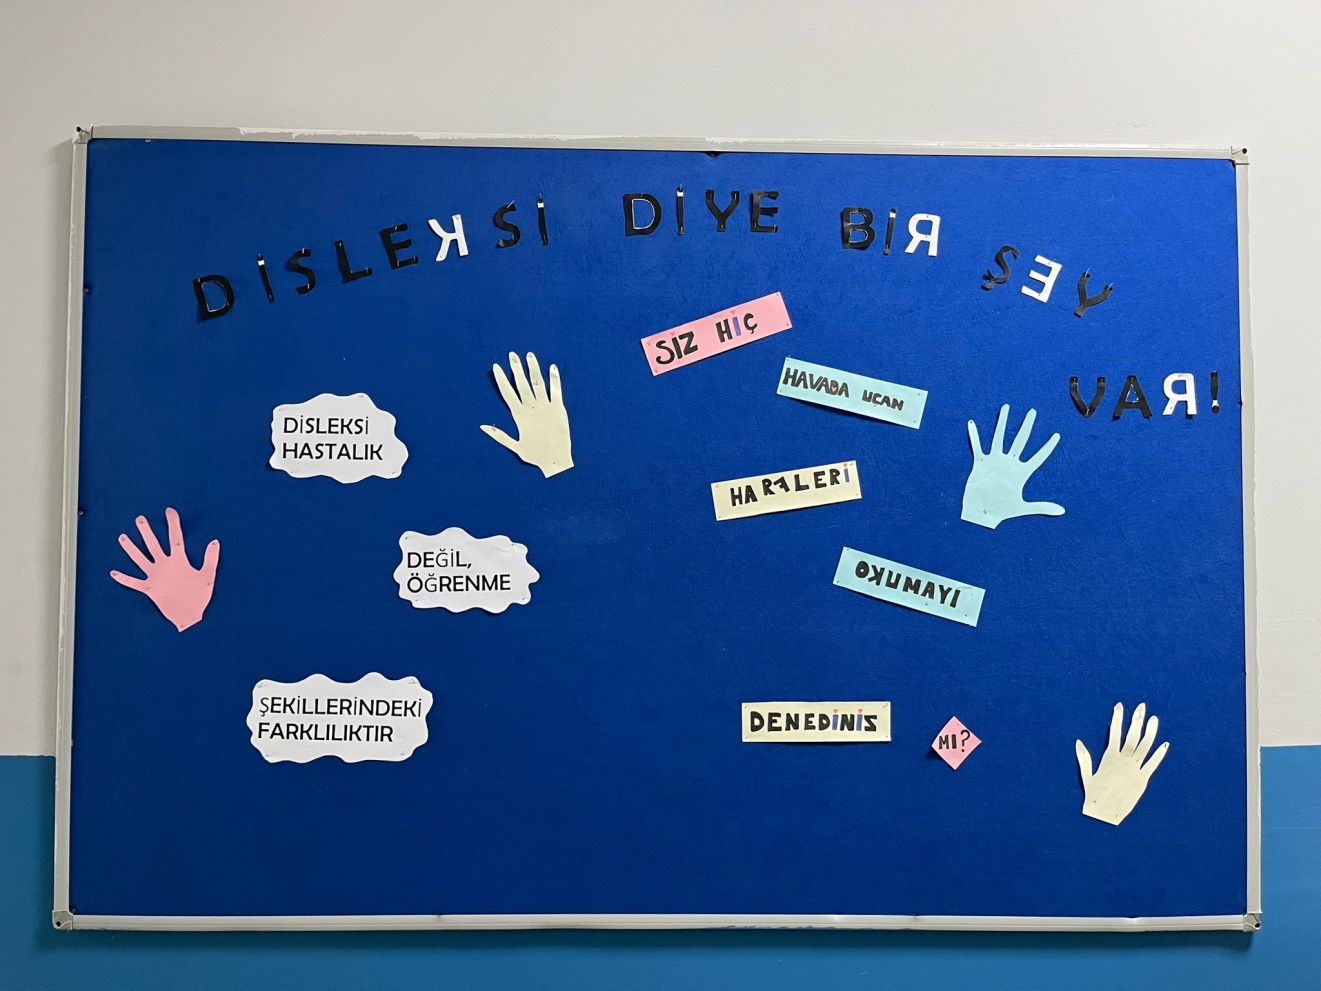 DİSLEKSİ DİYE BİR ŞEY
VAR!
DİSLEKSİ
HASTALIK
DEĞİL,
ÖĞRENME
ŞEKİLLERİNDEKİ
FARKLILIKTIR
SİZ HİÇ
HAVADA UÇAN
HARFLERİ
OKUMAYI
DENEDİNİZ
MI?